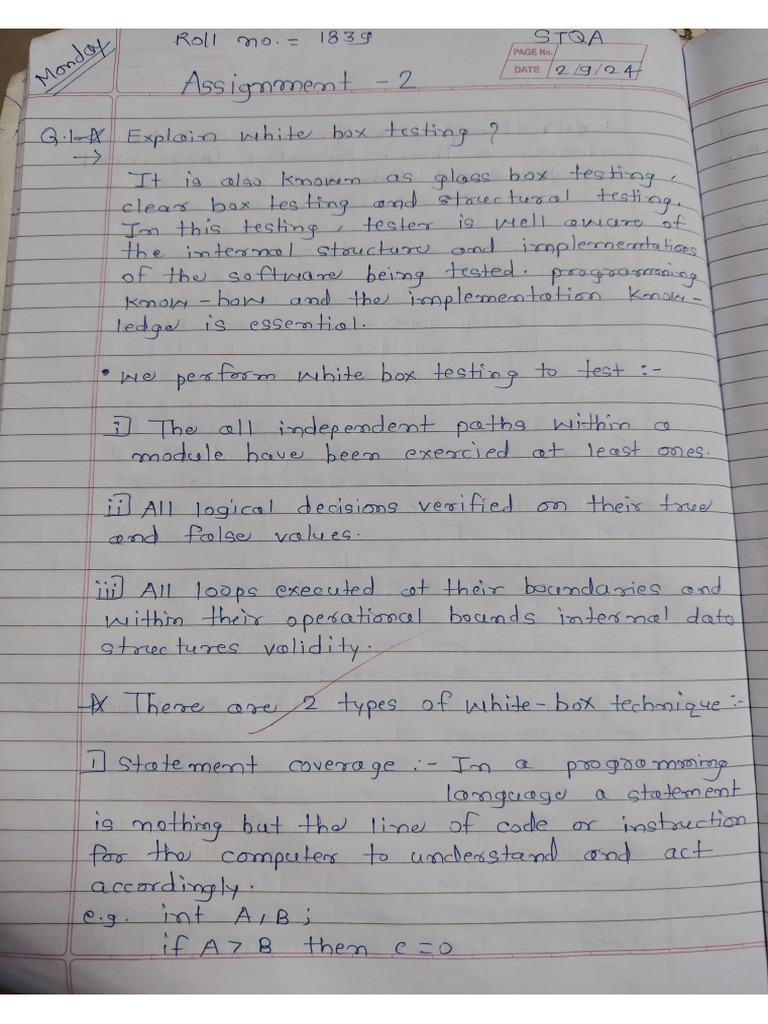 Monday
Roll no. = 1839
STQA
PAGE No.
DATE 2/9/24
Assignment - 2
Q.1 Explain white box testing ?
→
It is also known as glass box testing,
clear box testing and structural testing.
In this testing, tester is well aware of
the internal structure and implementations
of the software being tested. programming
know-how and the implementation know-
ledge is essential.
• we perform white box testing to test :-
i) The all independent paths within a
module have been exercied at least ones.
ii) All logical decisions verified on their true
and false values.
iii) All loops executed at their boundaries and
within their operational bounds internal data
structures validity.
There are 2 types of white-box technique :-
i) statement coverage :- In a programming
language a statement
is nothing but the line of code or instruction
for the computer to understand and act
accordingly.
e.g. int A, B;
if A > B then c = 0